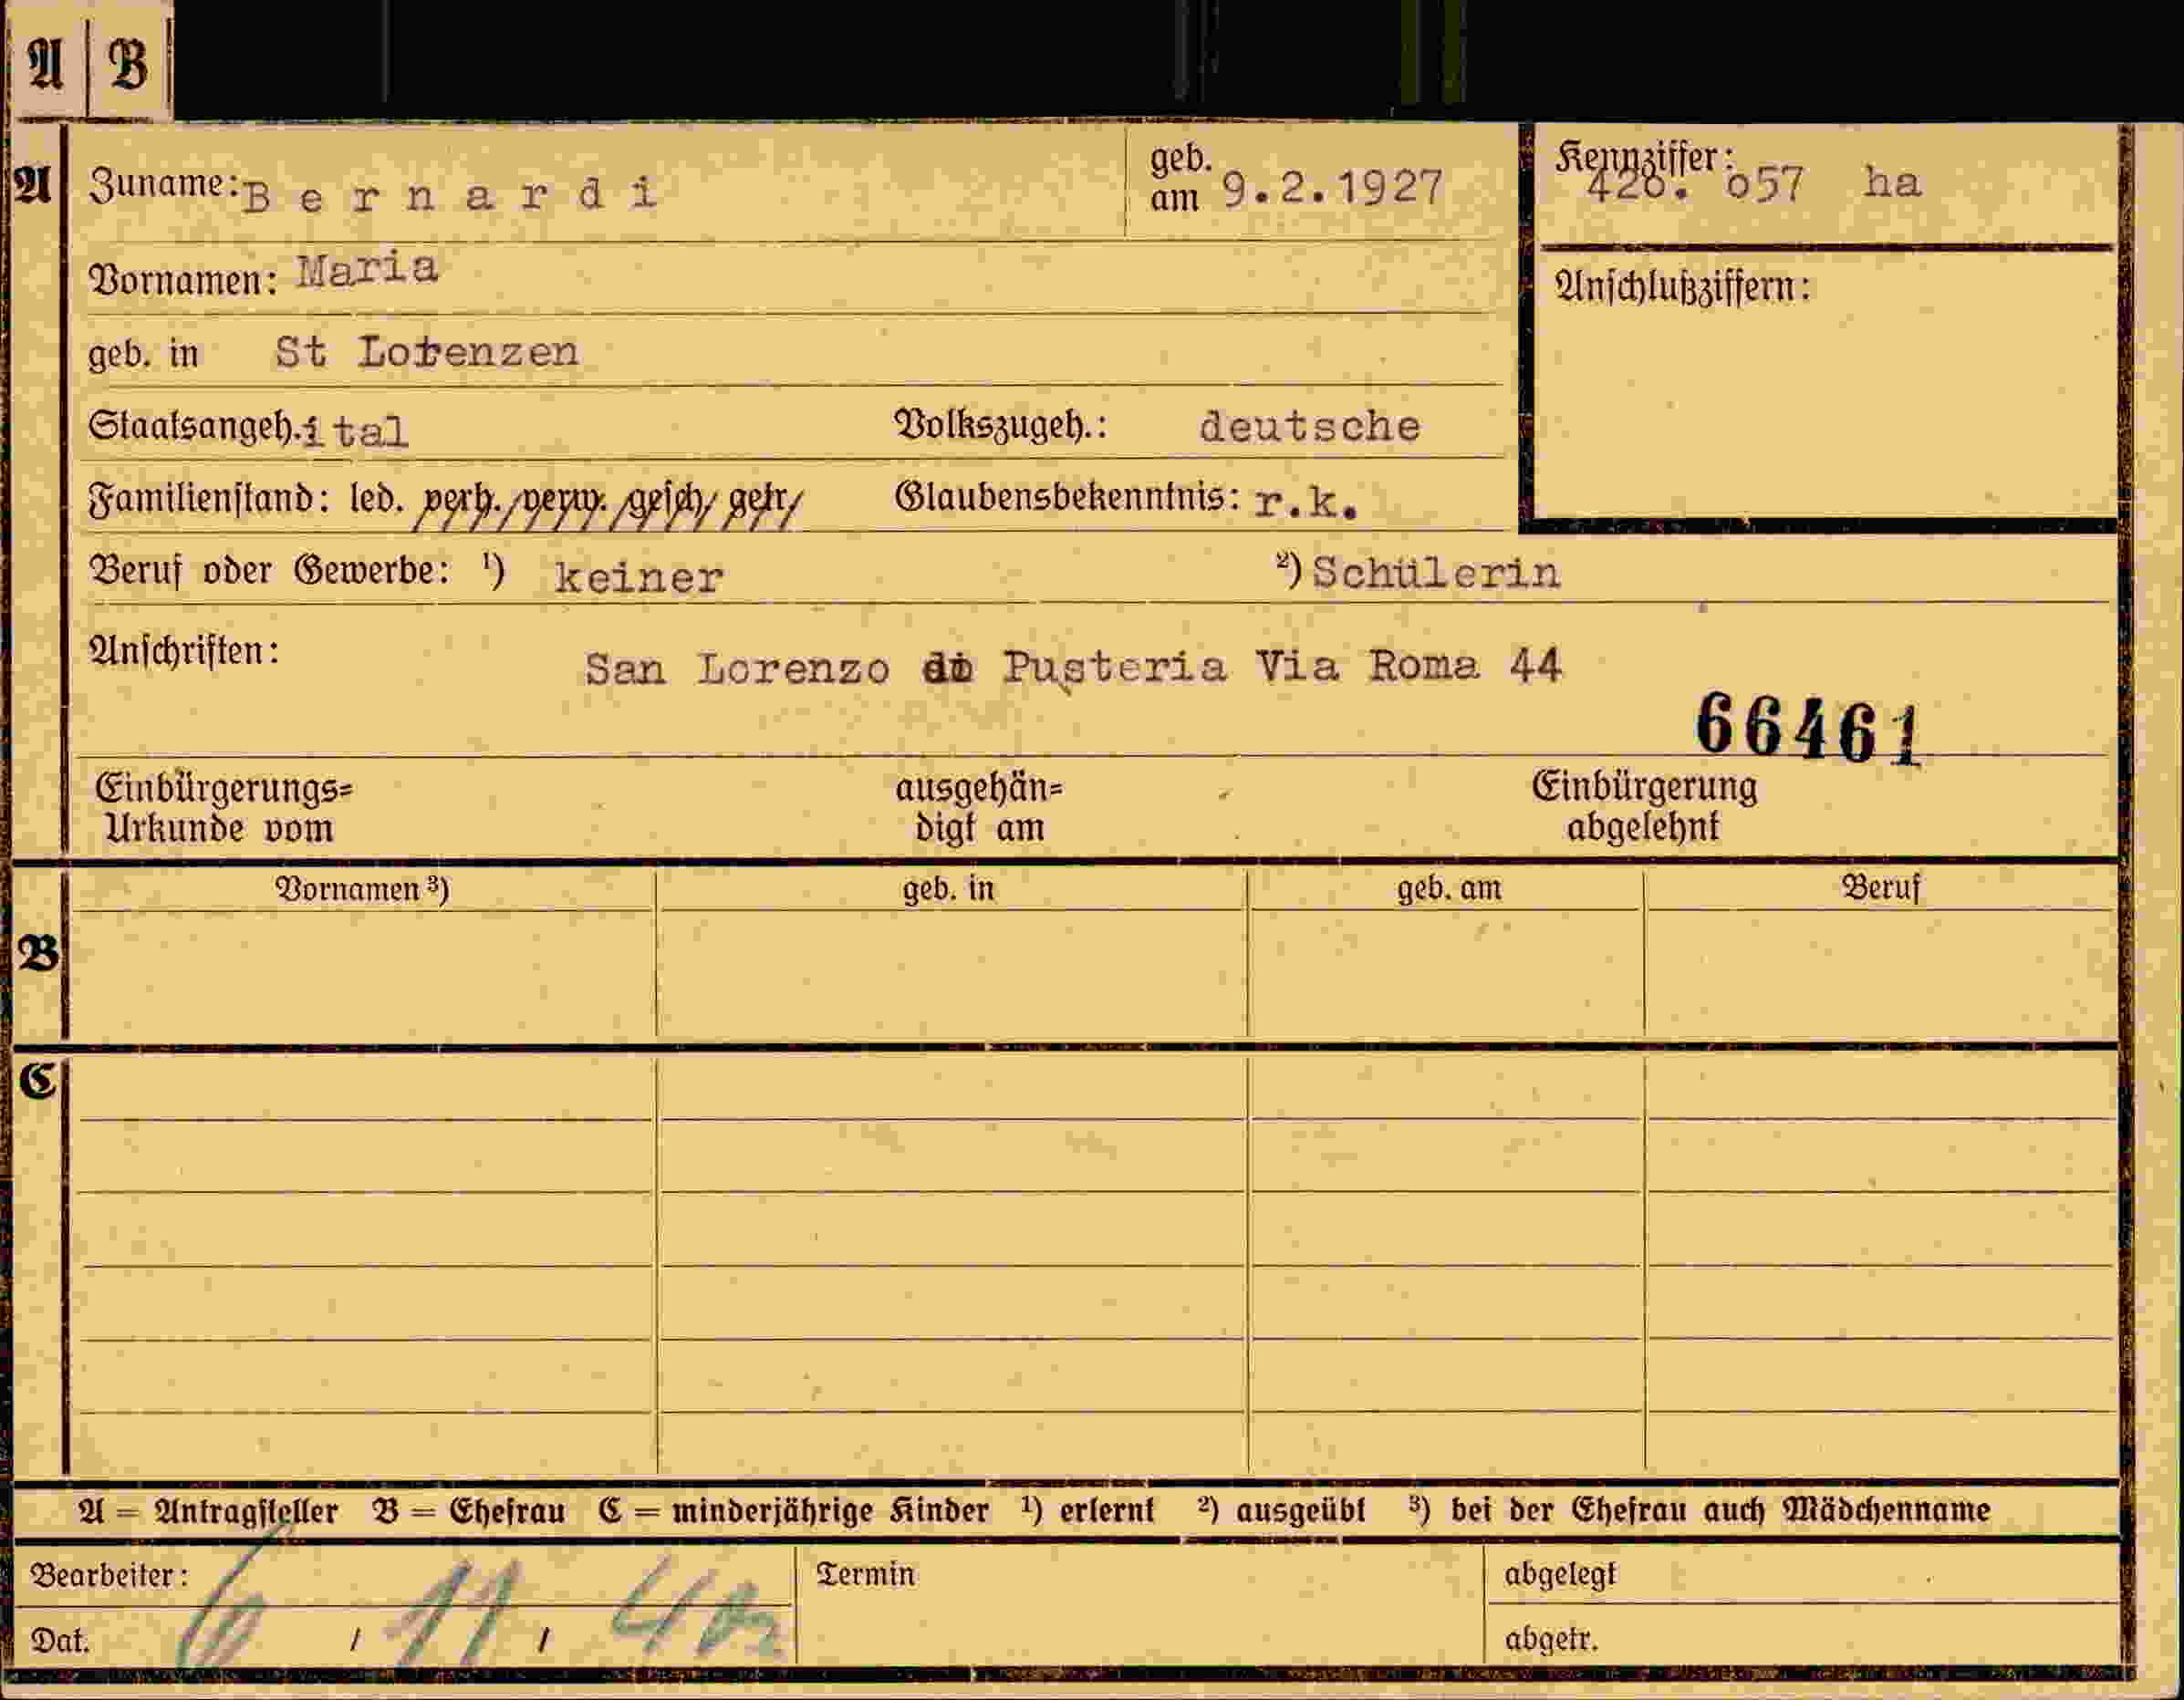 A B
A
Zuname: Bernardi geb. am 9.2.1927 Kennziffer: 426. o57 ha
Vornamen: Maria
Anschlußziffern:
geb. in St Lorenzen
Staatsangeh. ital Volkszugeh.: deutsche
Familienstand: led. verh. verw. gesch. getr. Glaubensbekenntnis: r.k.
Beruf oder Gewerbe: ¹) keiner ²) Schülerin
Anschriften: San Lorenzo di Pusteria Via Roma 44
66461
Einbürgerungs= ausgehän= Einbürgerung
Urkunde vom digt am abgelehnt
Vornamen ³) geb. in geb. am Beruf
B
C
A = Antragsteller B = Ehefrau C = minderjährige Kinder ¹) erlernt ²) ausgeübt ³) bei der Ehefrau auch Mädchenname
Bearbeiter: Termin abgelegt
Dat. 6 / 11 / abgetr.